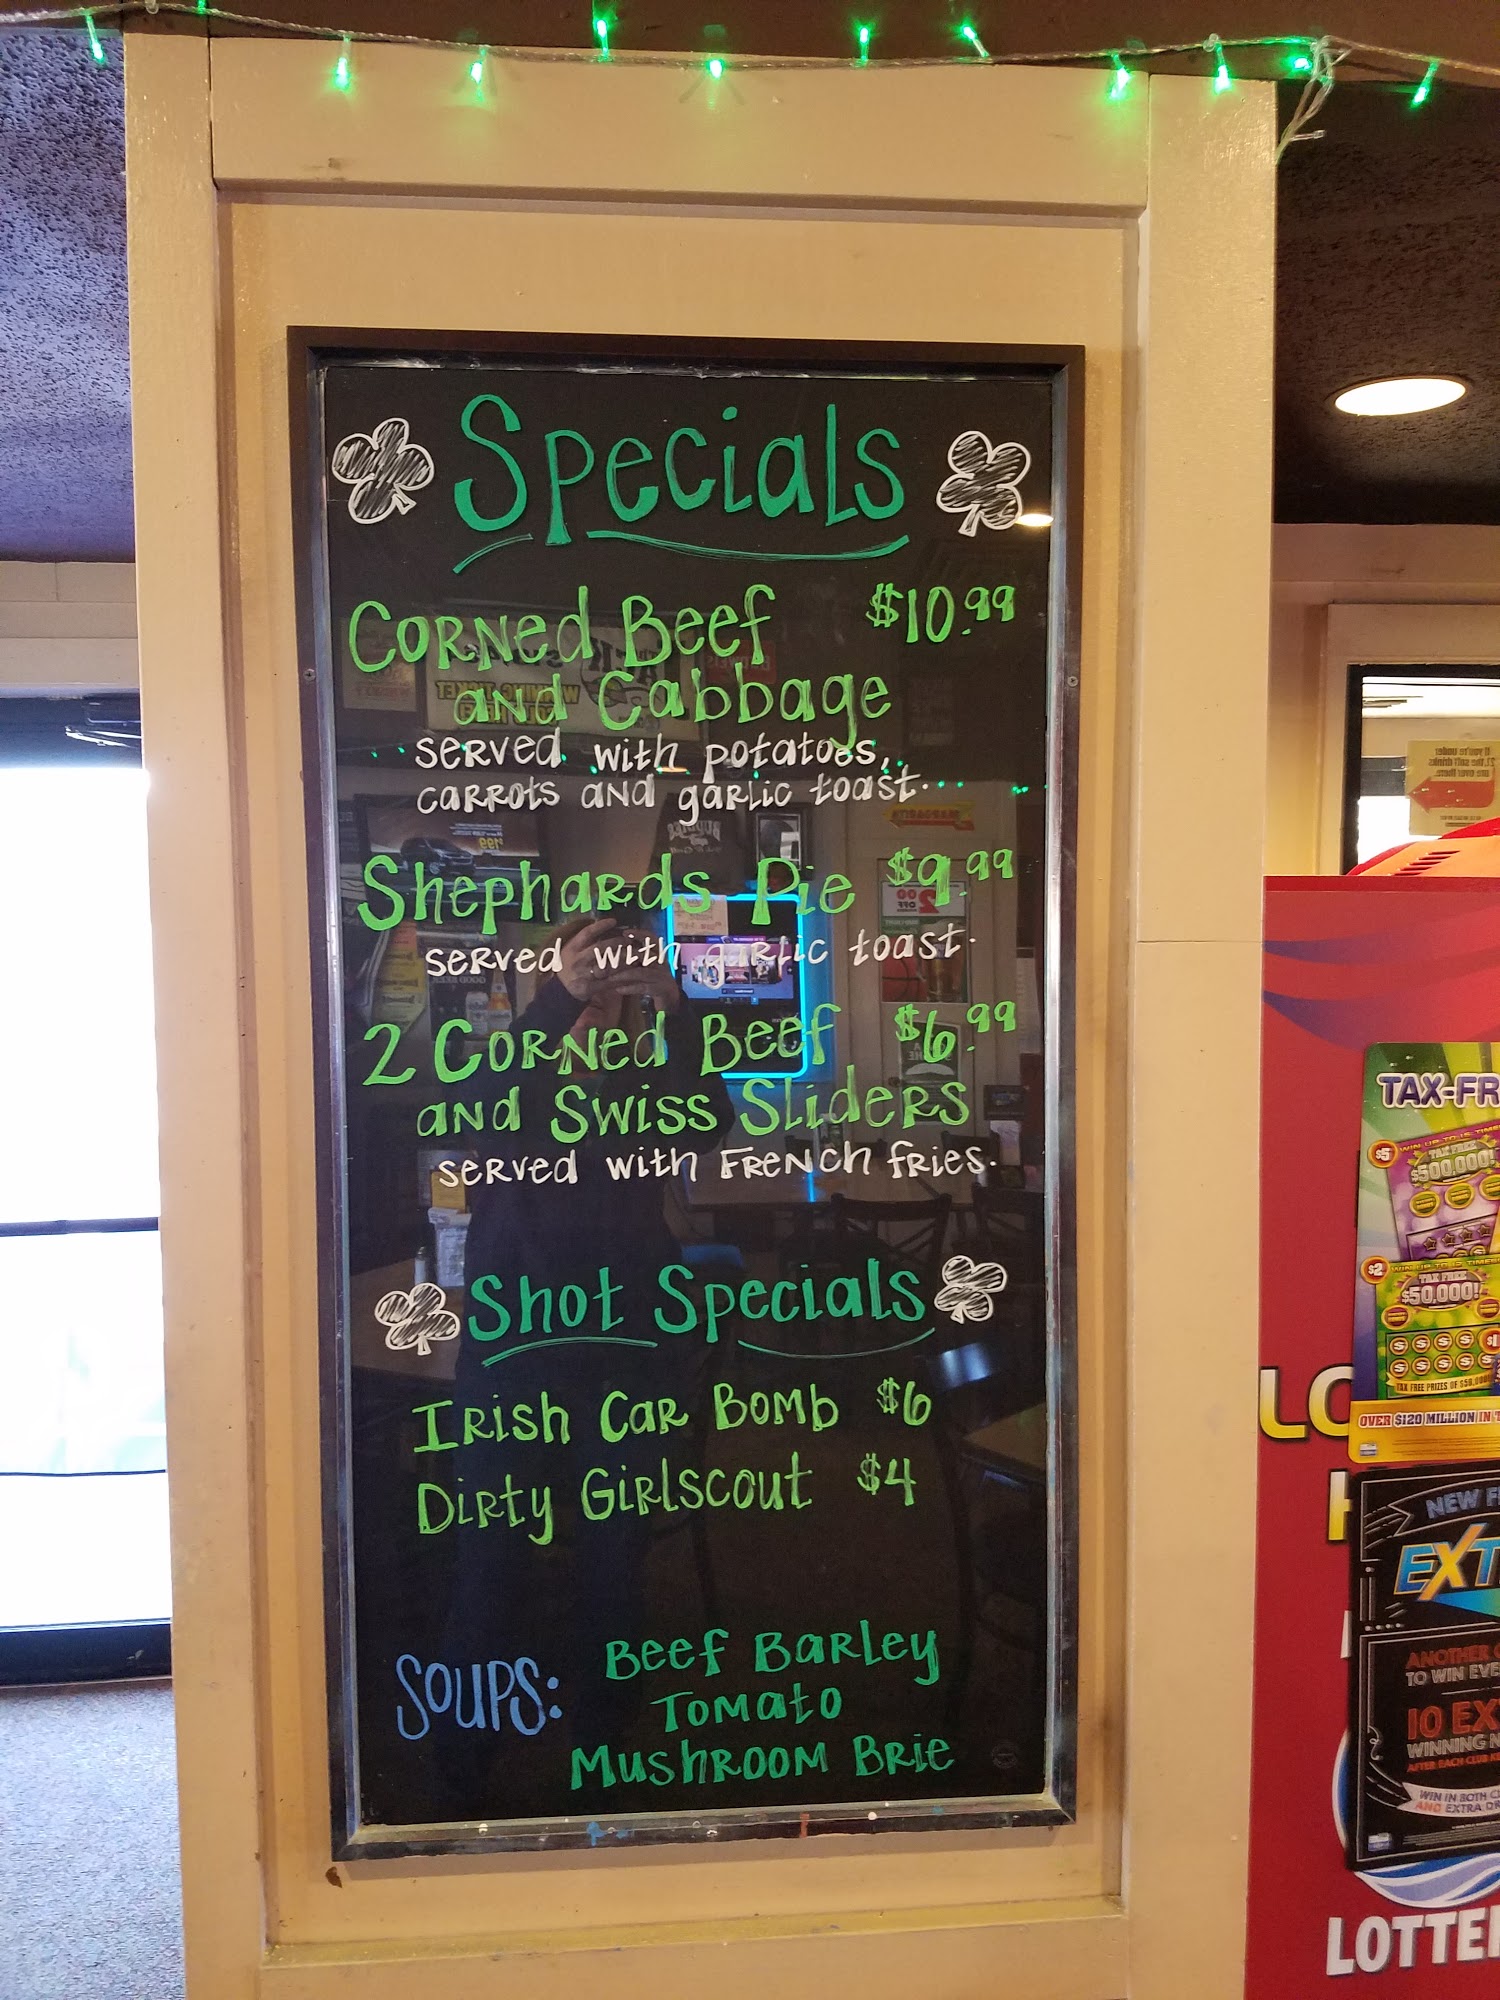 Specials
Corned Beef $10.99
and Cabbage
served with potatoes,
carrots and garlic toast.
Shephards Pie $9.99
served with garlic toast.
2 Corned Beef $6.99
and Swiss Sliders
served with French fries.
Shot Specials
Irish Car Bomb $6
Dirty Girlscout $4
Soups: Beef Barley
Tomato
Mushroom Brie
If you're under
21, the soft drinks
are over there.
TAX-FR
$5
WIN UP TO 15 TIMES
TAX FREE
$500,000!
$2
TAX FREE
$50,000!
TAX FREE PRIZES OF $50,000!
OVER $120 MILLION IN
LO
NEW
EXT
ANOTHER
TO WIN EVE
10 EX
WINNING N
AFTER EACH CLUB
WIN IN BOTH
AND EXTRA
LOTTE